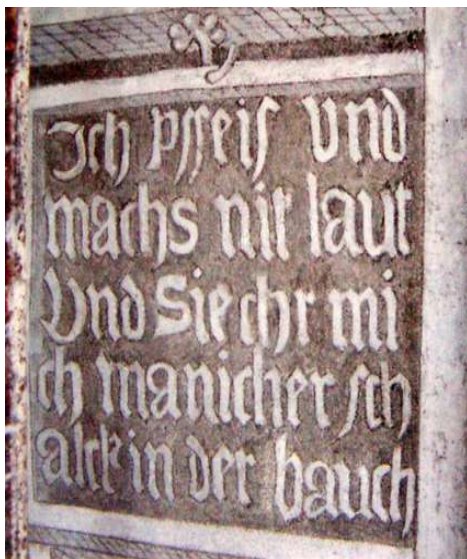 Ich pfeif Vnd
machs nit laut
Vnd Siechr mi
ch manicher sch
alck in der bauch